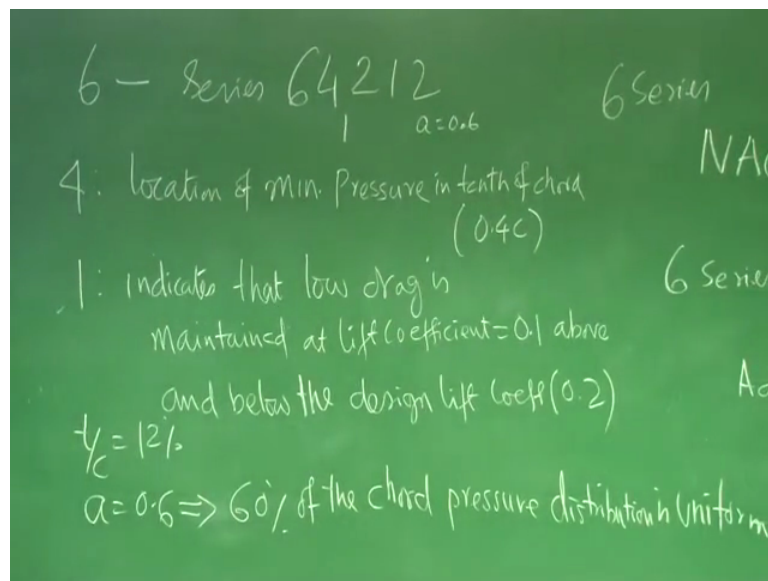 6 - Series 64212
6 Series
1 a=0.6
NAC
4: location of min. Pressure in tenth of chord
(0.4C)
6 Series
1: indicates that low drag is
maintained at lift coefficient=0.1 above
and below the design lift coeff (0.2)
t/c = 12%
a=0.6 => 60% of the chord pressure distribution is uniform